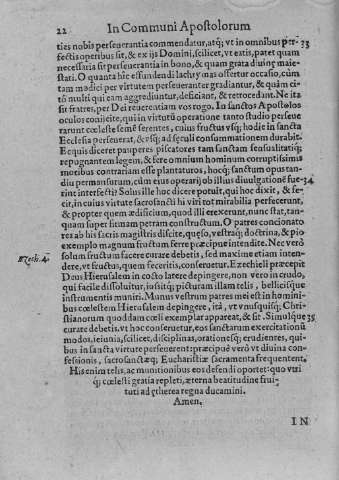 22 In Communi Apostolorum
ties nobis perseuerantia commendatur, atq; vt in omnibus per- 33
fectis operibus sit, & ex ijs Domini, scilicet, vt eatis, patet quam
necessaria sit perseuerantia in bono, & quam grata diuinę maie-
stati. O quanta hic effundendi lachrymas offertur occasio, cùm
tam modici per virtutem perseueranter gradiantur, & quàm ci-
tò multi qui eam aggrediuntur, deficiant, & retrocedant. Ne ita
sit fratres, per Dei reuerentiam vos rogo. In sanctos Apostolos
oculos conijcite, qui in virtutũ operatione tanto studio perseue
rarunt cœleste semẽ ferentes, cuius fructus vsq; hodie in sancta
Ecclesia perseuerat, & vsq; ad sęculi consummationem durabit.
Ecquis diceret pauperes piscatores tam sanctam sensualitatiq;
repugnantem legem, & ferè omnium hominum corruptissimis
moribus contrariam esse plantaturos, hocq; sanctum opus tan-
diu permansurum, cùm eius operarij ob illius diuulgationẽ fue- 34
rint interfecti? Solus ille hoc dicere potuit, qui hoc dixit, & fe-
cit, in cuius virtute sacrosancti hi viri tot mirabilia perfecerunt,
& propter quem ædificium, quod illi erexerunt, nunc stat, tan-
quam super firmam petram constructum. O patres concionato
res ab his sacris magistris discite, quęso, vestraq; doctrina, & pio
exemplo magnum fructum ferre præcipuè intendite. Nec verò
solùm fructum facere curare debetis, sed maximè etiam inten-
Ezech. 4. dere, vt fructus, quem feceritis, conseruetur. Ezechieli præcepit
Deus Hierusalem in cocto latere depingere, non verò in crudo,
qui facilè dissoluitur, iussitq; picturam illam telis, bellicisque
instrumentis muniri. Munus vestrum patres mei est in homini-
bus cœlestem Hierusalem depingere, ità, vt vnusquisq; Chri-
stianorum quoddam cœli exemplar appareat, & sit. Simulque 35
curare debetis, vt hoc conseruetur, eos sanctarum exercitationũ
modos, ieiunia, scilicet, disciplinas, orationesq; erudientes, qui-
bus in sancta virtute perseuerent: præcipuè verò vt diuina con-
fessionis, sacrosanctæq; Eucharistiæ Sacramenta frequentent.
His enim telis, ac munitionibus eos defendi oportet: quo vtri
q; cœlesti gratia repleti, æterna beatitudine frui-
turi ad ętherea regna ducamini.
Amen.
I N